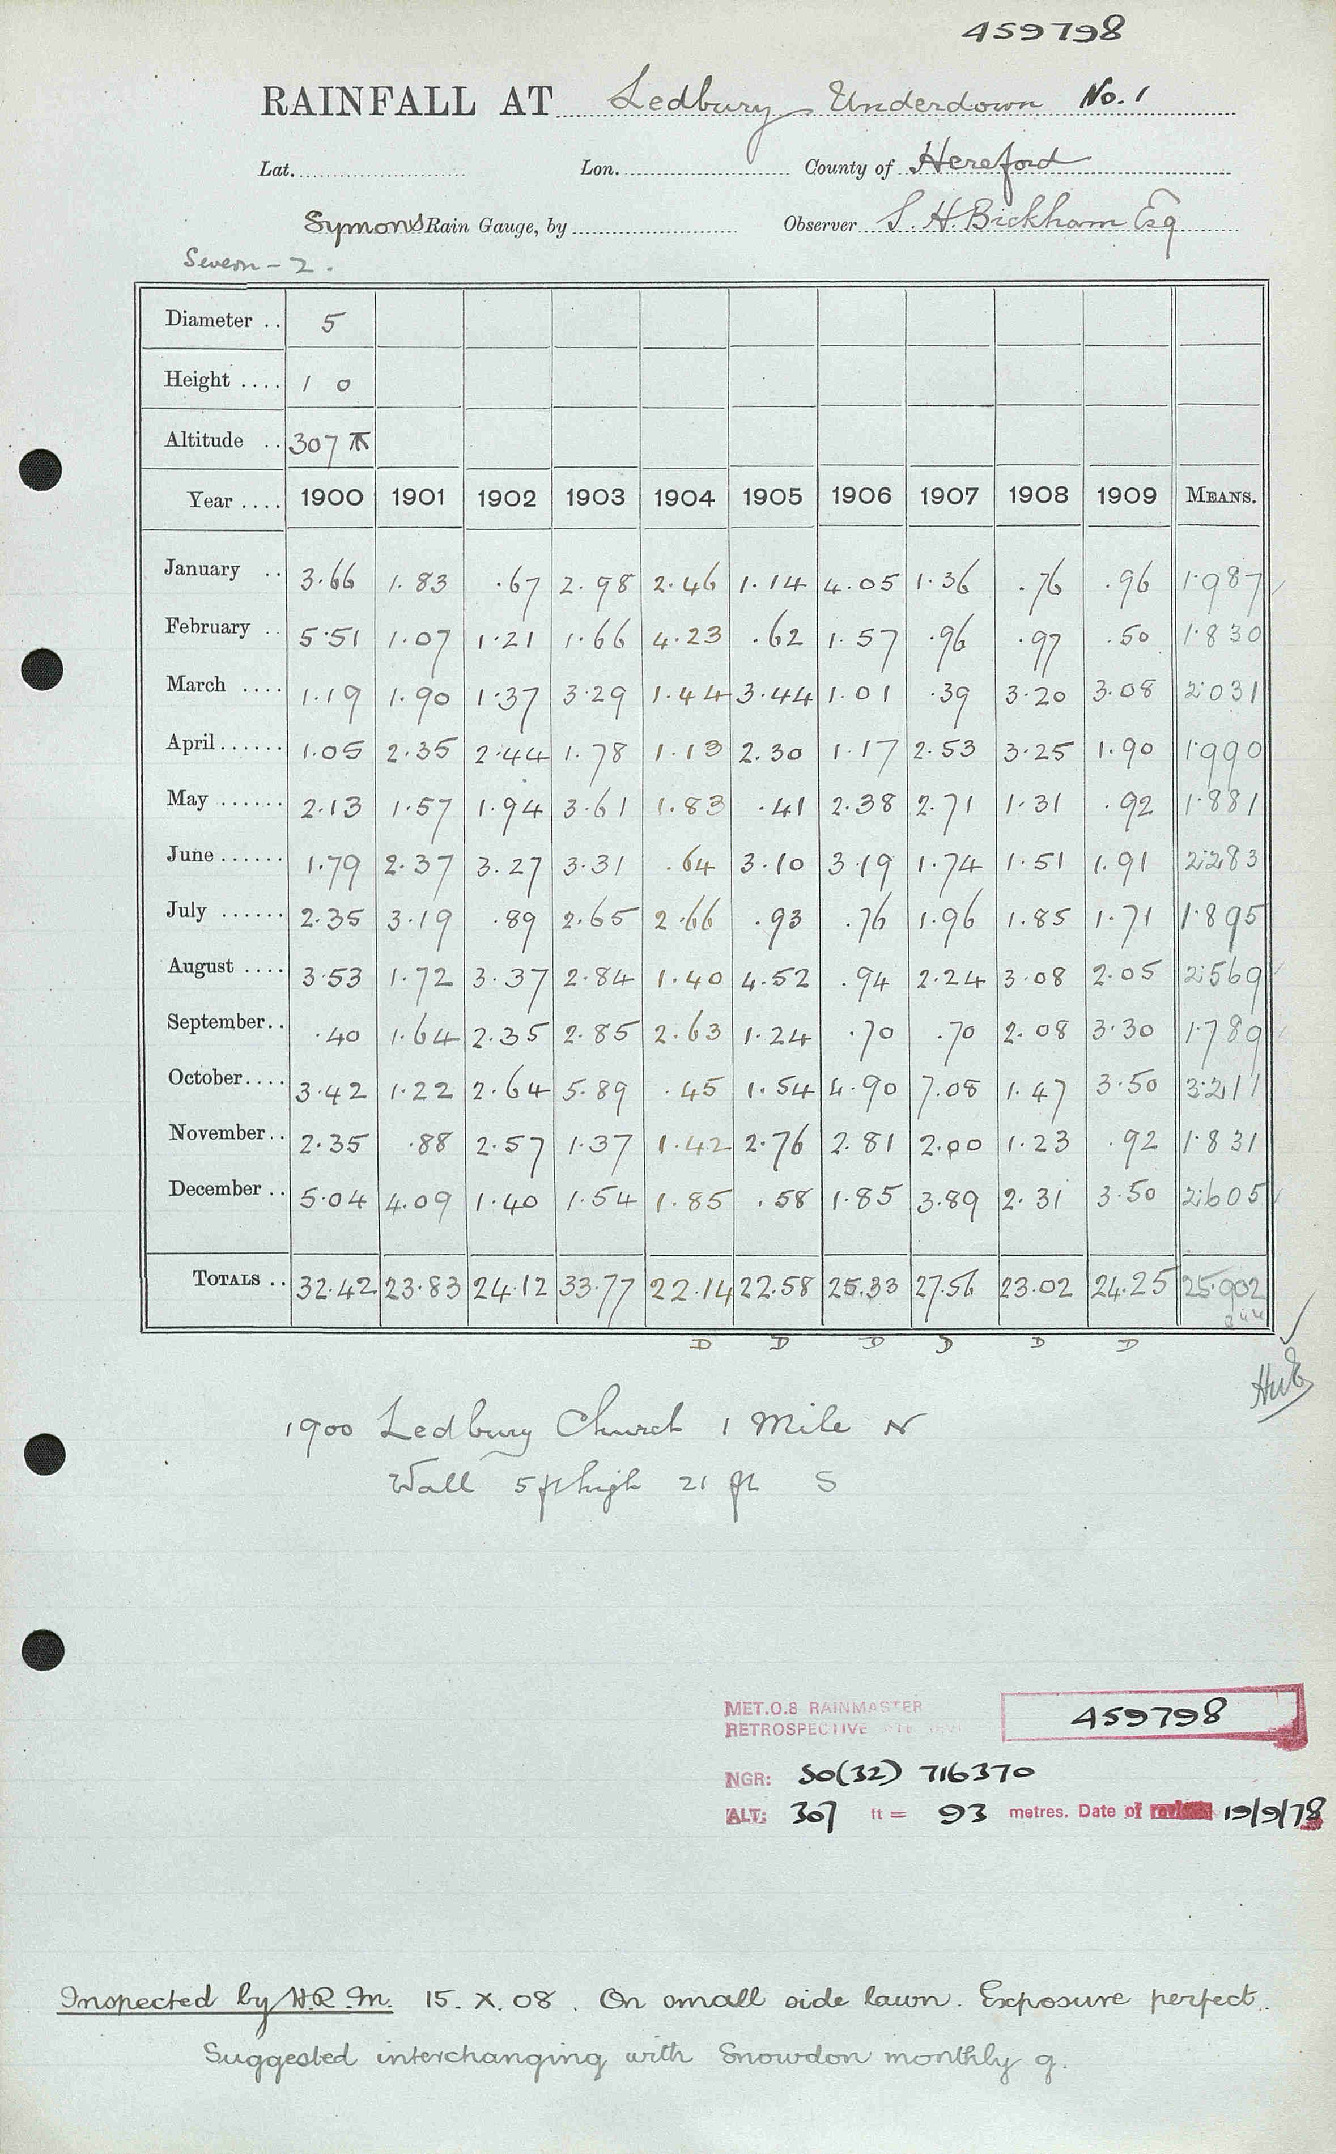 459798
RAINFALL AT Ledbury Underdown No. 1
Lat. Lon. County of Hereford
Symons Rain Gauge, by Observer S. H. Bickham Esq
Severn - 2.
Diameter .. 5
Height .... 1 0
Altitude .. 307
Year .... 1900 1901 1902 1903 1904 1905 1906 1907 1908 1909 MEANS.
January .. 3.66 1.83 .67 2.98 2.46 1.14 4.05 1.36 .76 .96 1.987
February .. 5.51 1.07 1.21 1.66 4.23 .62 1.57 .96 .97 .50 1.830
March .... 1.19 1.90 1.37 3.29 1.44 3.44 1.01 .39 3.20 3.08 2.031
April...... 1.05 2.35 2.44 1.78 1.13 2.30 1.17 2.53 3.25 1.90 1.990
May ...... 2.13 1.57 1.94 3.61 1.83 .41 2.38 2.71 1.31 .92 1.881
June ...... 1.79 2.37 3.27 3.31 .64 3.10 3.19 1.74 1.51 1.91 2.283
July ...... 2.35 3.19 .89 2.65 2.66 .93 .76 1.96 1.85 1.71 1.895
August .... 3.53 1.72 3.37 2.84 1.40 4.52 .94 2.24 3.08 2.05 2.569
September.. .40 1.64 2.35 2.85 2.63 1.24 .70 .70 2.08 3.30 1.789
October.... 3.42 1.22 2.64 5.89 .45 1.54 4.90 7.08 1.47 3.50 3.211
November.. 2.35 .88 2.57 1.37 1.42 2.76 2.81 2.00 1.23 .92 1.831
December .. 5.04 4.09 1.40 1.54 1.85 .58 1.85 3.89 2.31 3.50 2.605
TOTALS .. 32.42 23.83 24.12 33.77 22.14 22.58 25.33 27.56 23.02 24.25 25.902
D D D D D D
1900 Ledbury Church 1 Mile N
Wall 5 ft high 21 ft S
MET.O.8 RAINMASTER
RETROSPECTIVE
459798
NGR: SO(32) 716370
ALT: 307 ft = 93 metres. Date of 19/9/78
Inspected by H.R.M. 15. X. 08. On small side lawn. Exposure perfect.
Suggested interchanging with Snowdon monthly g.